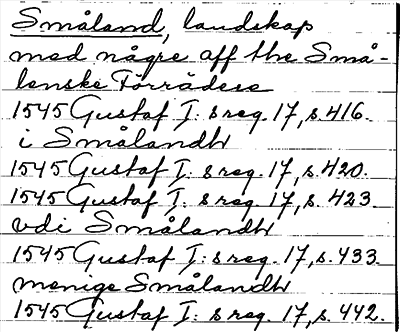 Småland, landskap
med någre aff the Små-
lenske Förrädese
1545 Gustaf I: s reg. 17, s. 416.
i Smålandh
1545 Gustaf I: s reg. 17, s. 420.
1545 Gustaf I: s reg. 17, s. 423
vdi Smålandh
1545 Gustaf I: s reg. 17, s. 433.
menige Smålandh
1545 Gustaf I: s reg. 17, s. 442.